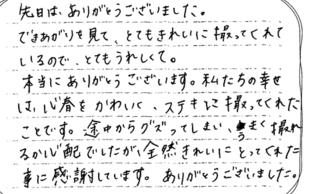 先日は、ありがとうございました。
できあがりを見て、とてもきれいに撮ってくれて
いるので、とてもうれしくて。
本当にありがとうございます。私たちの幸せ
は、心春をかわいく、ステキに撮ってくれた
ことです。途中からグズってしまい、うまく撮れ
るか心配でしたが、全然きれいにとってくれた
事に感謝しています。ありがとうございました。